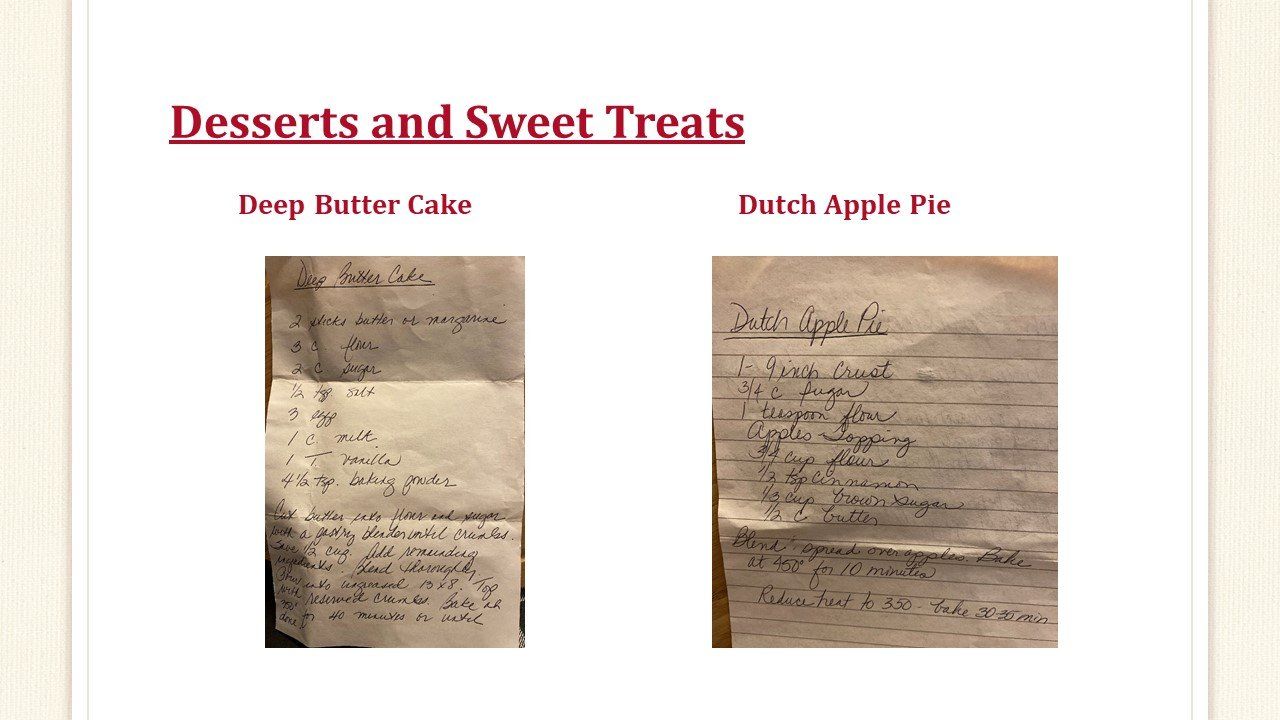 Desserts and Sweet Treats
Deep Butter Cake
Dutch Apple Pie
Deep Butter Cake
2 sticks butter or margarine
3 c flour
2 c sugar
1/2 tsp salt
3 egg
1 c. milk
1 T. vanilla
4 1/2 tsp. baking powder
Cut butter into flour and sugar
with a pastry blender until crumbs.
Save 1/2 cup. Add remaining
ingredients & blend thoroughly
into ungreased 13 x 8. Top
with reserved crumbs. Bake at
350 for 40 minutes or until
done.
Dutch Apple Pie
1 - 9 inch Crust
3/4 c Sugar
1 teaspoon flour
Apples - Topping
3/4 cup flour
tsp cinnamon
1/3 cup brown sugar
1/2 c butter
Blend & spread over apples. Bake
at 450° for 10 minutes
Reduce heat to 350 - bake 30-35 min